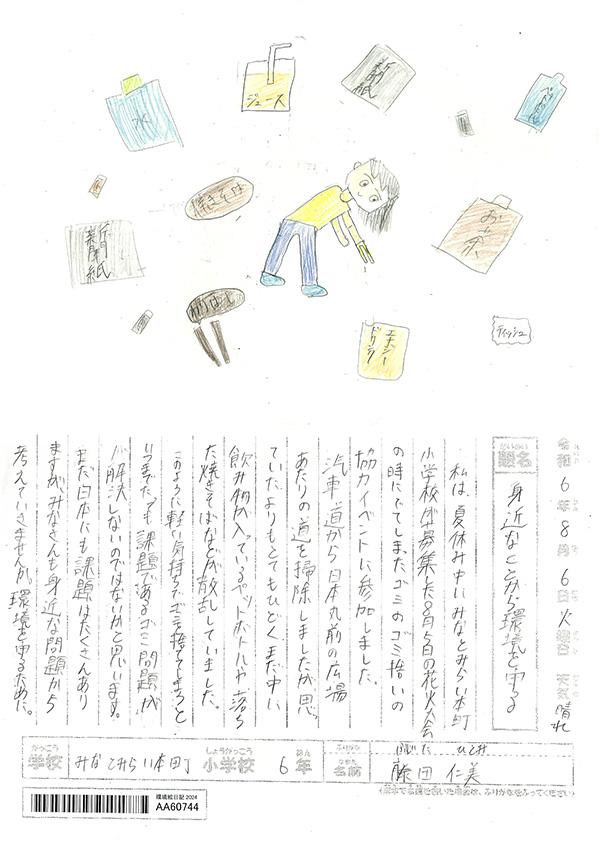 水
ジュース
新聞紙
お茶
焼きそば
新聞紙
エナジー
ドリンク
ティッシュ
令和6年8月6日火曜日 天気 晴れ
題名 身近なことから環境を守る
私は、夏休み中にみなとみらい本町
小学校が募集した8月5日の花火大会
の時にでてしまったゴミのゴミ拾いの
協力イベントに参加しました。
汽車道から日本丸前の広場
あたりの道を掃除しましたが思っ
ていたよりもとてもひどく、まだ中に
飲み物が入っているペットボトルや落ち
た焼きそばなどが散乱していました。
このように軽い気持ちでゴミを捨ててしまうと
いつまでたっても課題であるゴミ問題が
解決しないのではないかと思います。
まだ日本にも課題はたくさんあり
ますがみなさんも身近な問題から
考えていきませんか。環境を守るために。
がっこう しょうがっこう ねん ふりがな ふじた ひとみ
学校 みなとみらい本町 小学校 6年 名前 藤田 仁美
(漢字で名前を書いた場合は、ふりがなをふってください)
環境絵日記 2024
AA60744